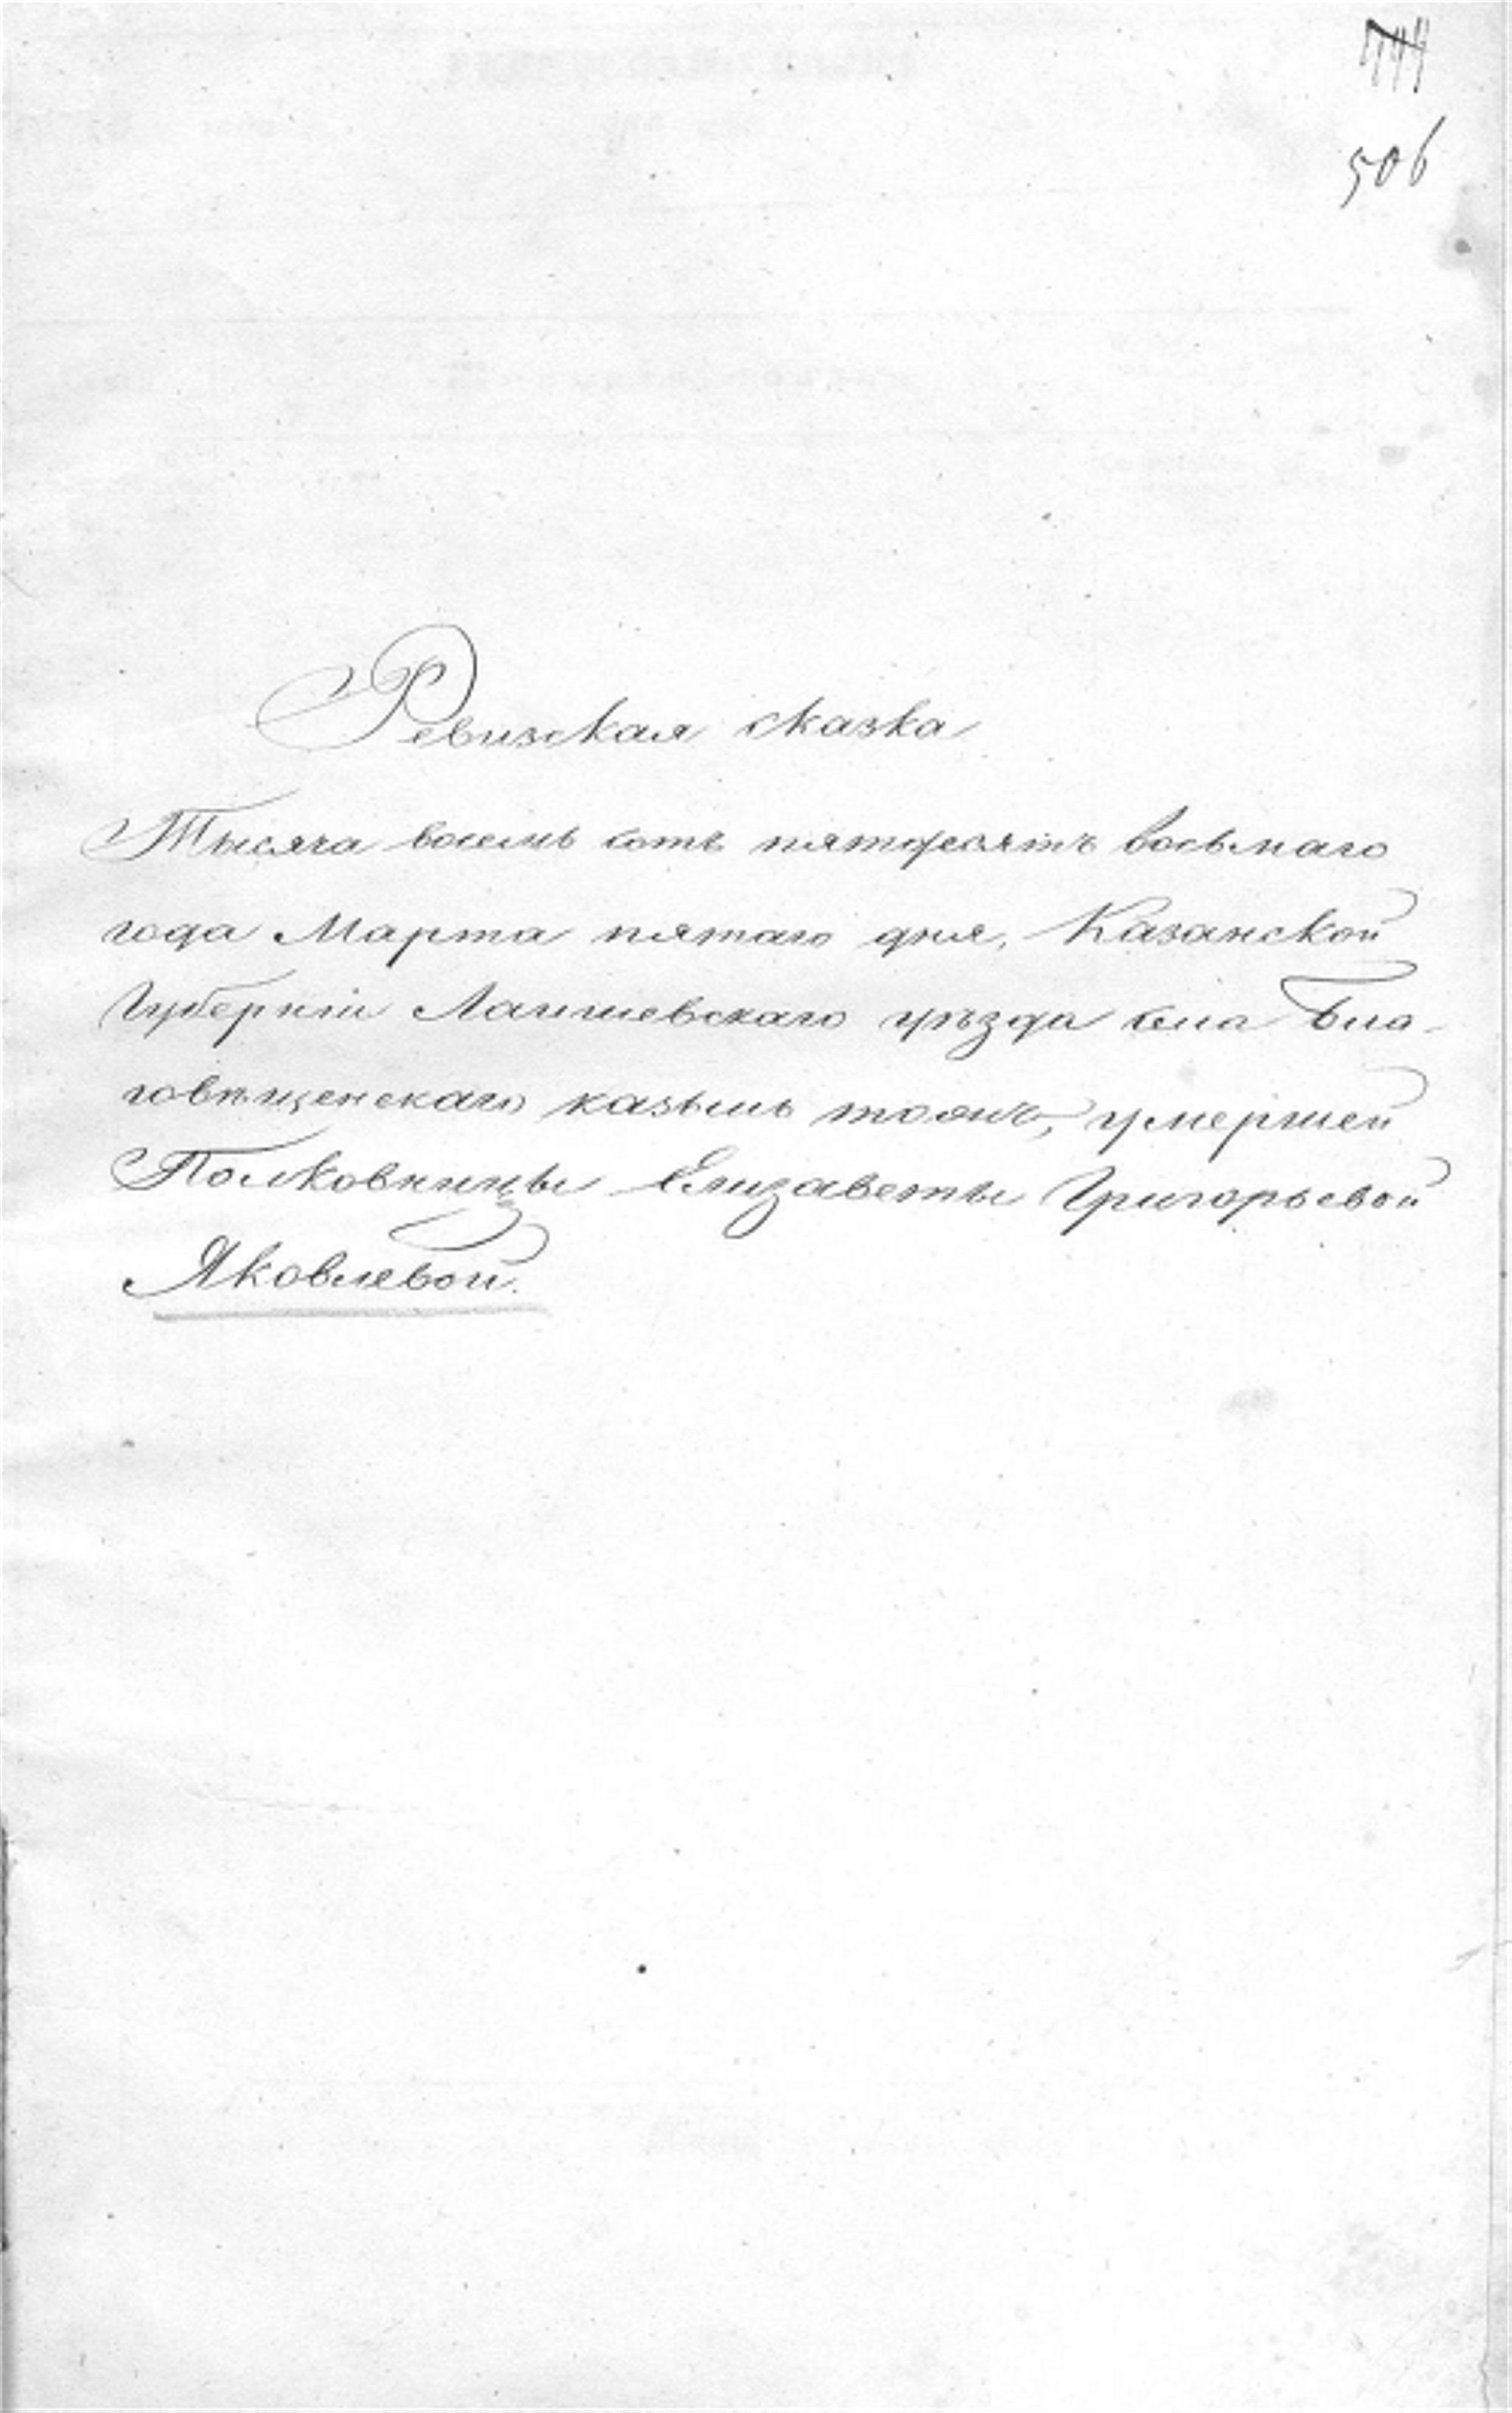 506
Ревизская сказка
Тысяча восемь сотъ пятдесятъ восьмаго
года Марта пятаго дня, Казанской
Губерніи Лаишевскаго уѣзда села Бла-
говѣщенскаго казыль тожъ, умершей
Полковницы Елизаветы Григорьевой
Яковлевой.